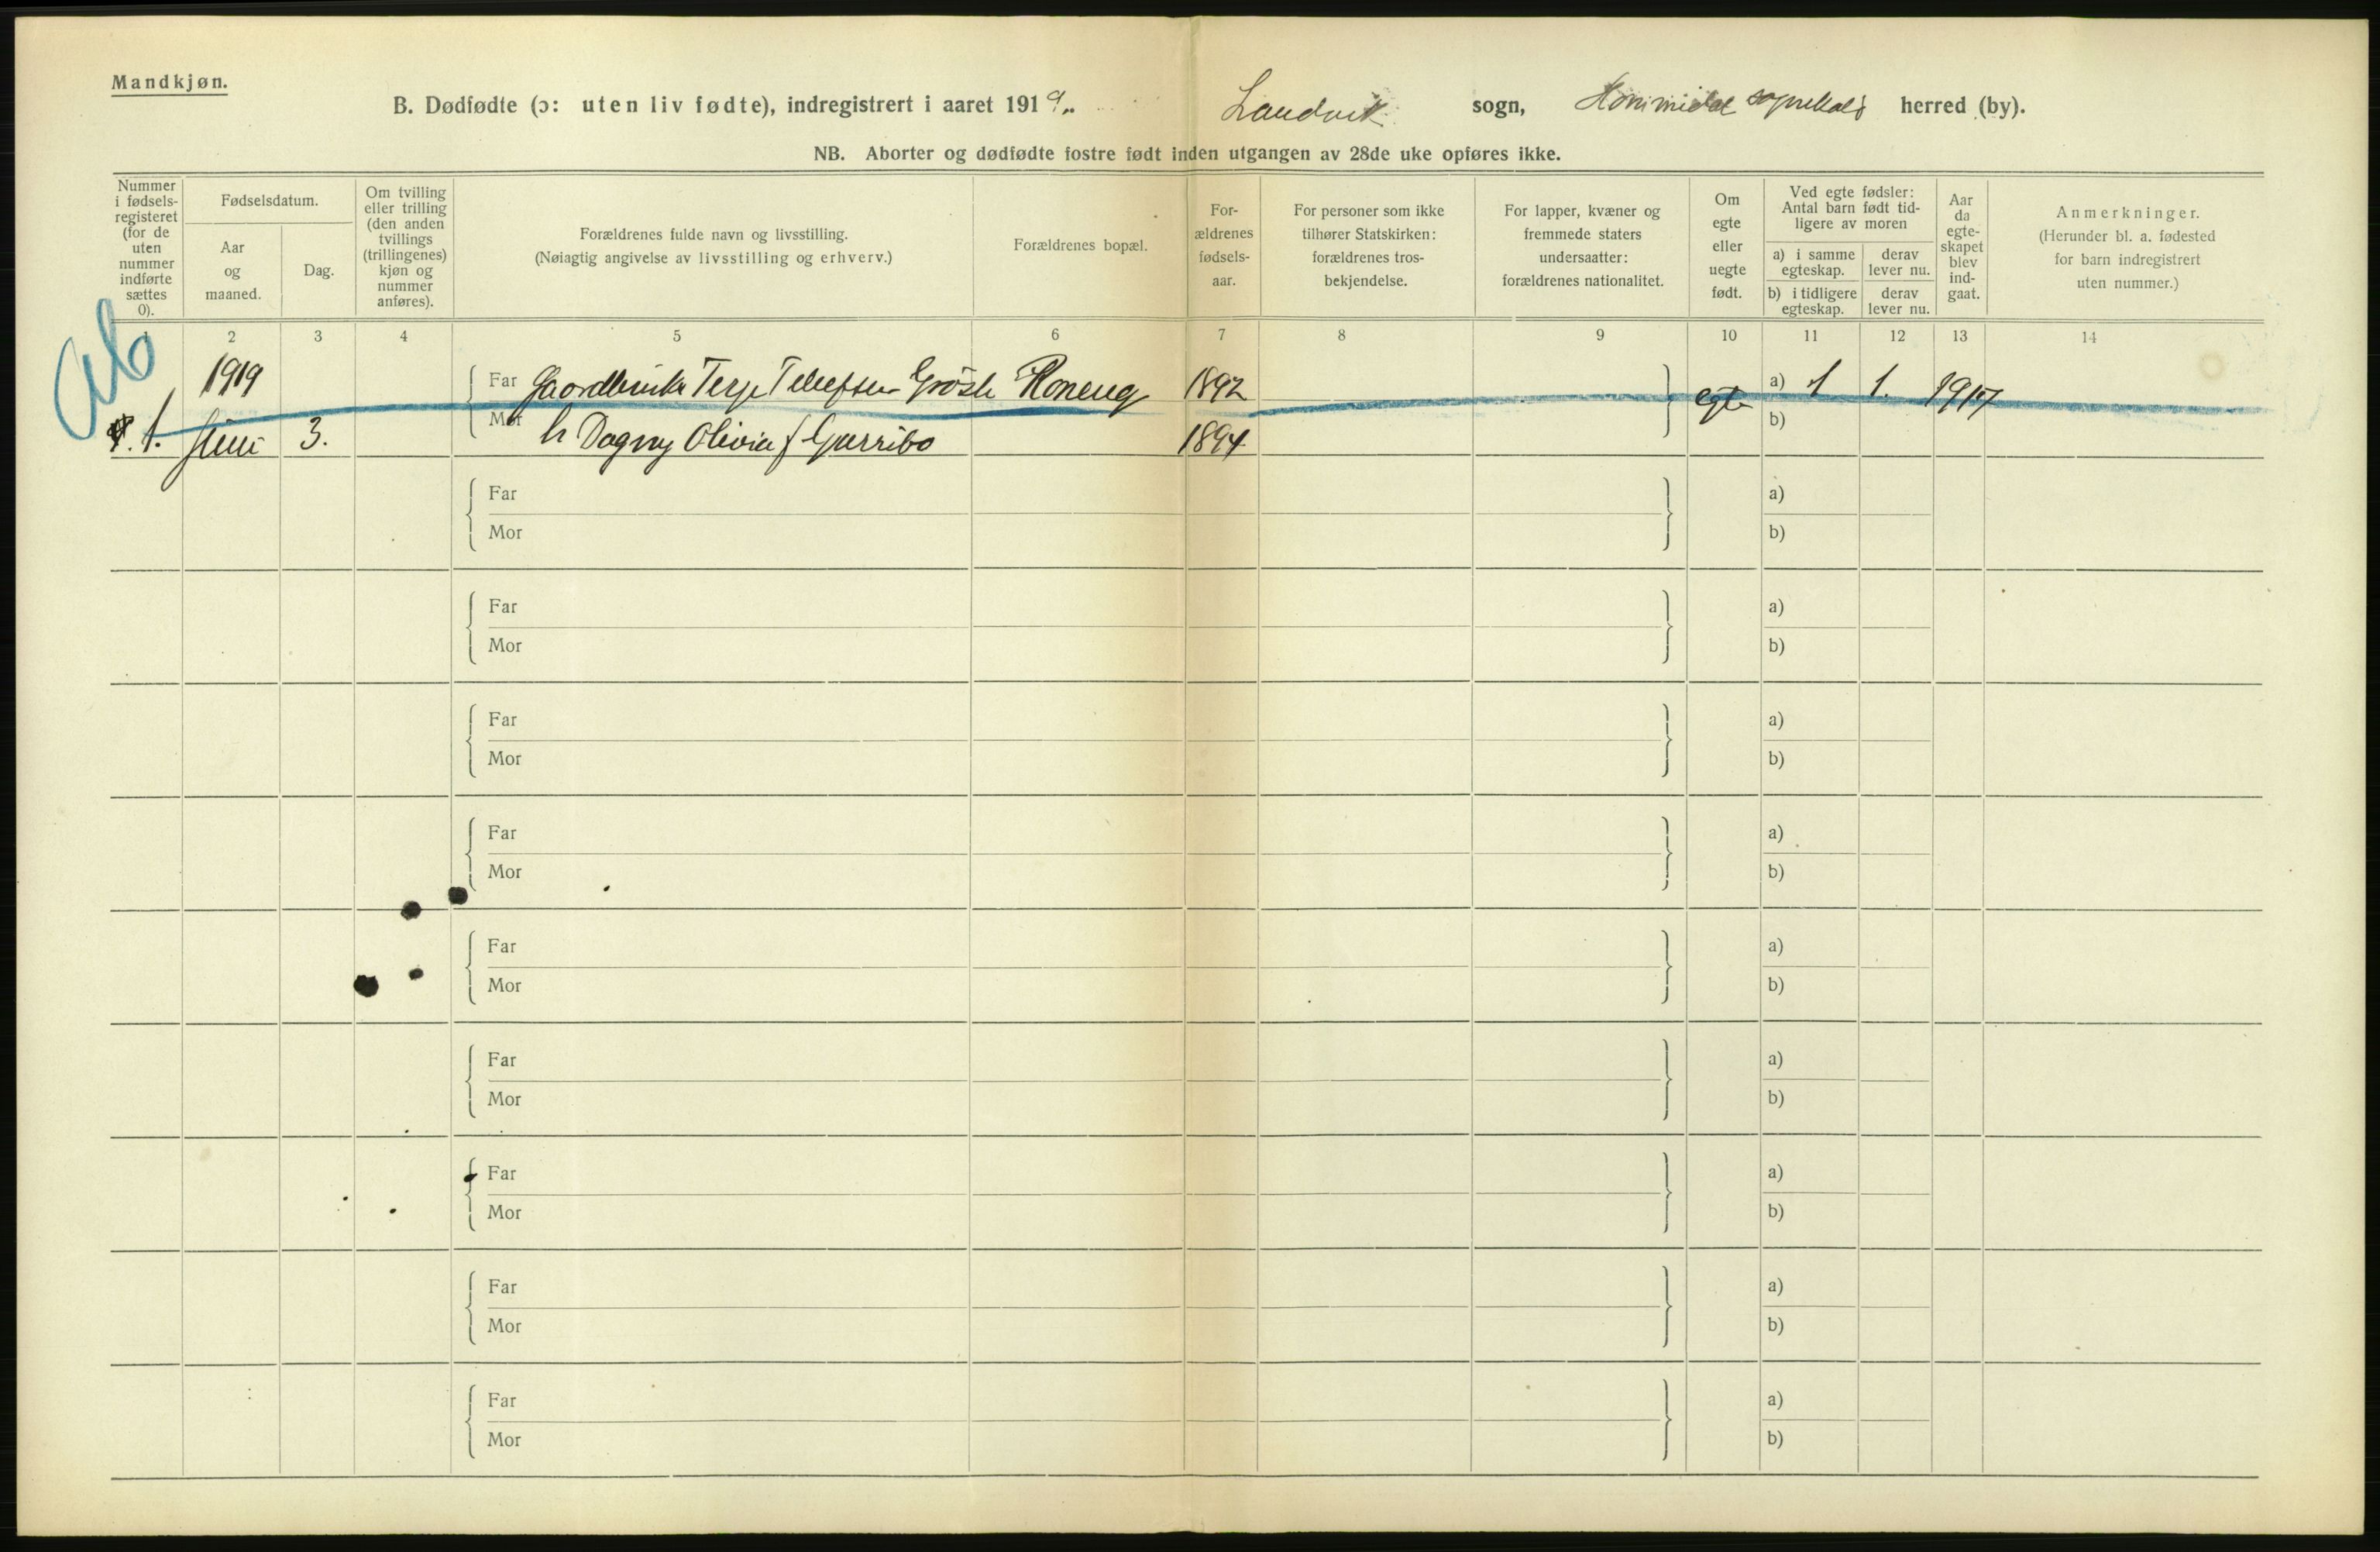 Mandkjøn.
B. Dødfødte (ɔ: uten liv fødte), indregistrert i aaret 1919. Landvik sogn, Hommedal sognekald herred (by).
NB. Aborter og dødfødte fostre født inden utgangen av 28de uke opføres ikke.
Nummer i fødsels-registeret (for de uten nummer indførte sættes 0).
Fødselsdatum.
Aar og maaned.
Dag.
Om tvilling eller trilling (den anden tvillings (trillingenes) kjøn og nummer anføres).
Forældrenes fulde navn og livsstilling.
(Nøiagtig angivelse av livsstilling og erhverv.)
Forældrenes bopæl.
For-ældrenes fødsels-aar.
For personer som ikke tilhører Statskirken: forældrenes tros-bekjendelse.
For lapper, kvæner og fremmede staters undersaatter: forældrenes nationalitet.
Om egte eller uegte født.
Ved egte fødsler: Antal barn født tid-ligere av moren
a) i samme egteskap.
derav lever nu.
b) i tidligere egteskap.
derav lever nu.
Aar da egte-skapet blev ind-gaat.
Anmerkninger.
(Herunder bl. a. fødested for barn indregistrert uten nummer.)
1 2 3 4 5 6 7 8 9 10 11 12 13 14
Ab
1919 Far Gaardbruker Terje Tellefsen 1892 egte a) 1 1. 1917
1. Juni 3. Mor h Dagny Olivia f 1894 b)
Far a)
Mor b)
Far a)
Mor b)
Far a)
Mor b)
Far a)
Mor b)
Far a)
Mor b)
Far a)
Mor b)
Far a)
Mor b)
Far a)
Mor b)
Far a)
Mor b)